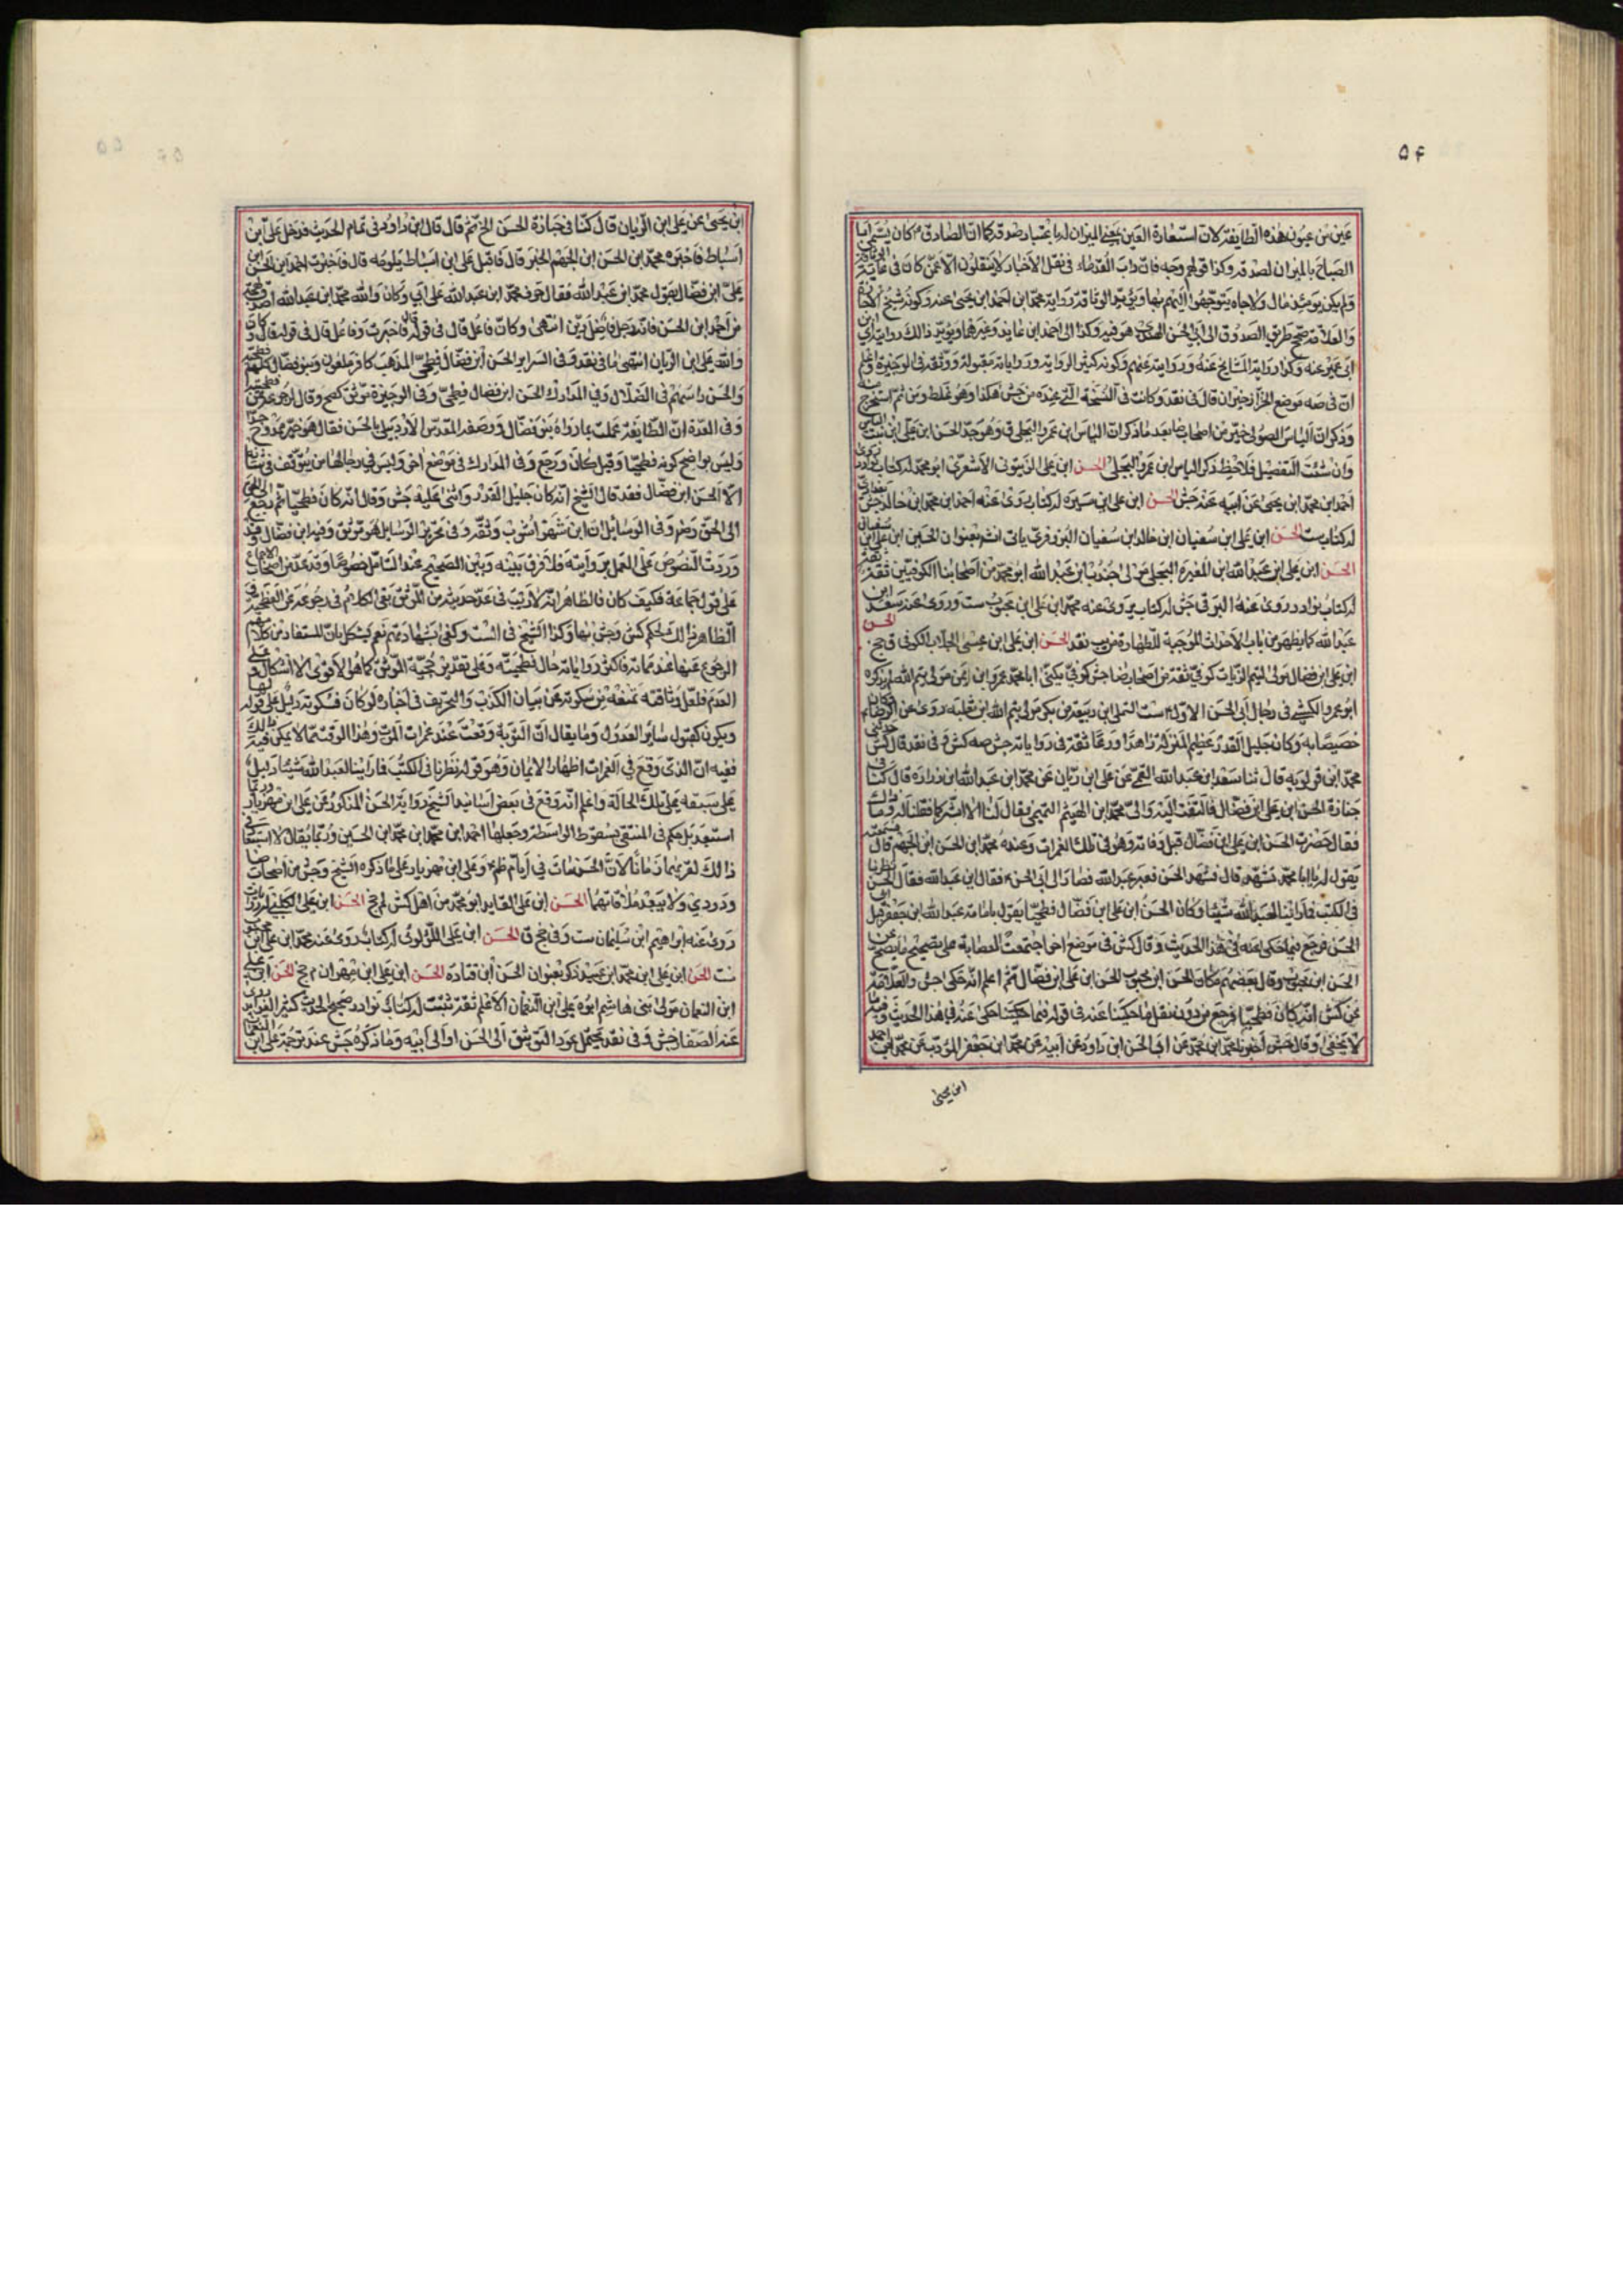 ۵۴
عين من عيون هذه الطايفة لان استعارة العين بمعنى الميزان له باعتبار صدقه كما ان الصادق ع كان يسمى ابا
الصباح بالميزان لصدقه وكذا قولهم وجه فان داب القدماء فى نقل الاخبار لا ينقلون الا عمن كان فى غاية
ولم يكن يومئذ مال ولا جاه يتوجهوا اليهم بها ويؤيد الوثاقة رواية محمد ابن احمد ابن يحيى عنه وكونه شيخ
والعلامة صحح طريق الصدوق الى ابى الحسن النهدى هو فيه وكذا الى احمد ابن عايذ وغيرهما ويؤيد ذالك رواية ابن
ابى عمير عنه وكذا رواية المشايخ عنه وروايته عنهم وكونه كثير الرواية ورواياته مقبولة ووثقه فى الوجيزة واعلم
ان فى صه موضع الخزاز خيران قال فى نقد وكانت فى النسخة التى عنده من جش هكذا وهو غلط ومن ثم استخرج
وذكر ان الياس الصوفى خير من اصحاب ضا بعد ما ذكر ان الياس ابن عمرو البجلى ق وهو جد الحسن ابن على ابن بنت
وان شئت التفصيل فلاحظ ذكر الياس ابن عمرو البجلى الحسن ابن على الزيتونى الاشعرى ابو محمد له كتاب
احمد ابن محمد ابن يحيى عن ابيه عنه جش الحسن ابن على ابن سبرة له كتاب روى عنه احمد ابن محمد ابن خالد جش
له كتاب ست الحسن ابن على ابن سفيان ابن خالد ابن سفيان البزوفرى ياتى انشم بعنوان الحسين ابن على ابن
الحسن ابن على ابن عبد الله ابن المغيرة البجلى مولى جندب ابن عبد الله ابو محمد من اصحابنا الكوفيين ثقة
له كتاب نوادر روى عنه البرقى جش له كتاب يروى عنه محمد ابن على ابن محبوب ست وروى عنه سعد ابن
عبد الله كما يظهر من باب الاحداث الموجبة للطهارة من يب نقد الحسن ابن على ابن عيسى الجلاب الكوفى ق جخ
الحسن
ابن على ابن فضال مولى لتيم الزيات كوفى ثقة من اصحاب ضا جش كوفى يكنى ابا محمد عمرو ابن ايمن مولى تيم الله لم يذكره
ابو عمرو الكشى فى رجال ابى الحسن الاول ع ست التملى ابن ربيعة بن بكر مولى تيم الله ابن ثعلبة روى عن الرضا ع
خصيصا به وكان جليل القدر عظيم المنزلة زاهدا ورعا ثقة فى رواياته جش صه كش و فى نقد قال كش
محمد ابن قولويه قال ثنا سعد ابن عبد الله القمى عن على ابن ريان عن محمد ابن عبد الله ابن زرارة قال كنا
جنازة الحسن ابن على ابن فضال فالتفت اليه والى محمد ابن الهيثم التميمى فقال لنا الا ابشركما فقلنا له وما ذاك
فقال حضرت الحسن ابن على ابن فضال قبل وفاته وهو فى تلك الغمرات وعنده محمد ابن الحسن ابن الجهم قال فسمعته
يقول له يا ابا محمد تشهد قال فتشهد الحسن فعبر عبد الله فصار الى ابى الحسن ع فقال ابن عبد الله فقال الحسن نظرنا
فى الكتب فما راينا لعبد الله شيئا وكان الحسن ابن على ابن فضال فطحيا يقول بامامة عبد الله ابن جعفر قبل ابى
الحسن فرجع فيما حكى عنه فى هذا الحديث وقال كش فى موضع اخر اجتمعت العصابة على تصحيح ما يصح عن
الحسن ابن محبوب وقال بعضهم مكان الحسن ابن محبوب الحسن ابن على ابن فضال ثم اعلم انه حكى جش والعلامة
عن كش انه كان فطحيا فرجع من دون نقل ما حكينا عنه فى قوله فيما حكينا حكى عنه فى هذا الحديث وفيه
لا يخفى وقال جش اخبرنا محمد ابن محمد عن ابى الحسن ابن داود عن ابيه عن محمد ابن جعفر المؤدب عن محمد ابن احمد
ابن يحيى
ابن يحيى عن على ابن الريان قال كنا فى جنازة الحسن الخ ثم قال قال ابن داود فى تمام الحديث فدخل على ابن
اسباط فاخبره محمد ابن الحسن ابن الجهم الخبر قال فاقبل على ابن اسباط يلومه قال فاخبرت احمد ابن الحسن ابن
على ابن فضال بقول محمد ابن عبد الله فقال حرف محمد ابن عبد الله على ابى وكان والله محمد ابن عبد الله اصدق لهجة
من احمد ابن الحسن فانه رجل فاضل دين انتهى وكان فاعل قال فى قوله قال فاخبرت وفاعل قال فى قوله قال وكان
والله على ابن الريان انتهى ما فى نقد و فى السراير الحسن ابن فضال فطحى المذهب كافر ملعون وبنو فضال كلهم فطحية
والحسن راسهم فى الضلال وفى المدارك الحسن ابن فضال فطحى وفى الوجيزة موثق كصح وقال
وفى العدة ان الطايفة عملت بما رواه بنو فضال ووصفه المقدس الاردبيلى بالحسن فقال هو خير ممدوح جدا
وليس بواضح كونه فطحيا وقيل كان ورجع وفى المدارك فى موضع اخر وليس فى رجالها من يتوقف فى شانه
الا الحسن ابن فضال فقد قال الشيخ انه كان جليل القدر واثنى عليه جش وقال انه كان فطحيا ثم رجع
الى الحق رض وفى الوسايل ان ابن شهر اشوب وثقه وفى تحرير الوسايل هو موثق وفيه ابن فضال وقد
وردت النصوص على العمل بروايته فلا فرق بينه وبين الصحيح عند التامل خصوصا وقد عد من اصحاب الاجماع
على قول جماعة فكيف كان فالظاهر انه لا ريب فى عد حديثه من الموثق بقى الكلام فى رجوعه عن الفطحية
الظاهر ذالك لحكم كش وجش بها وكذا الشيخ فى الست وكفى بشهادتهم نعم يشكل بان المستفاد من كلامهم
الرجوع عنها عند مماته فاكثر رواياته حال فطحيته وعلى تقدير حجية الموثق كما هو الاقوى لا اشكال و على
العدم فلعل وثاقته تمنعه من سكوته عن بيان الكذب والتحريف فى اخباره لو كان فسكوته دليل على قوله بها
ويكون كقبول ساير العدول وما يقال ان التوبة وقعت عند غمرات الموت وهذا الوقت مما لا يمكن فيه ذالك
ففيه ان الذى وقع فى الغمرات اظهار الايمان وهو قوله نظرنا فى الكتب فما راينا لعبد الله شيئا دليل
على سبقه على تلك الحالة واعلم انه وقع فى بعض اسانيد الشيخ رواية الحسن المذكور عن على ابن مهزيار وربما
استبعد بل حكم فى المنتقى بسقوط الواسطة وجعلها احمد ابن محمد ابن الحسين وربما يقال لا استبعاد فى
ذالك لقربهما زمانا لان الحسن مات فى ايام ظم ع وعلى ابن مهزيار على ما ذكره الشيخ وجش من اصحاب ضا
ود ودى ولا يبعد ملاقاتهما الحسن ابن على القايد ابو محمد من اهل كش لم جخ الحسن ابن على الكلبى له روايات
روى عنه ابراهيم ابن سليمان ست وفى جخ ق الحسن ابن على اللؤلؤى له كتاب روى عنه محمد ابن على ابن محبوب
ست الحسن ابن على ابن محمد ابن عبيد ذكر بعنوان الحسن ابن قتادة الحسن ابن على ابن مهران م جخ الحسن ابن على
ابن النعمان مولى بنى هاشم ابوه على ابن النعمان الاعلم ثقة ثبت له كتاب نوادر صحيح الحديث كثير الفوايد روى
عنه الصفار جش و فى نقد يحتمل عود التوثيق الى الحسن او الى ابيه وما ذكره جش عند ترجمة على ابن النعمان